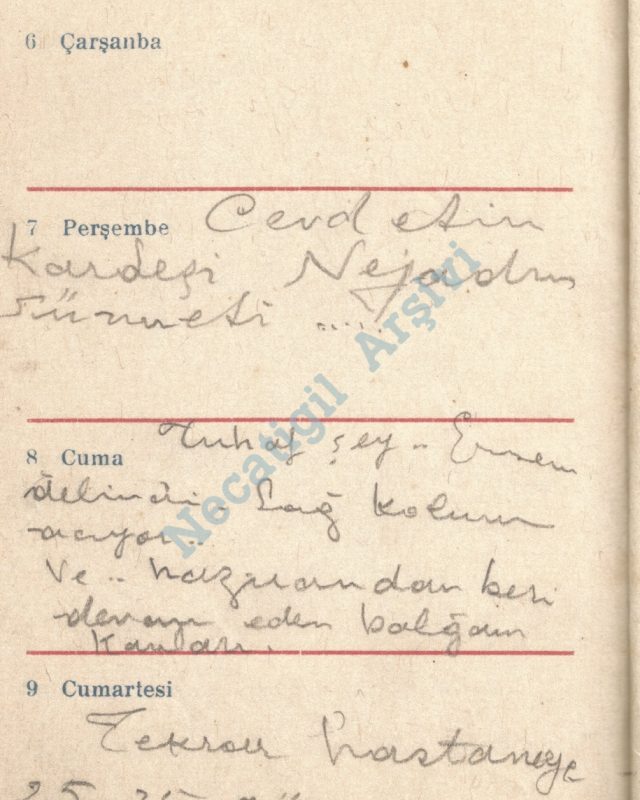 6 Çarşanba
7 Perşembe Cevdetin
Kardeşi Nejadın
Sünneti .....
8 Cuma Tuhaf şey..
delindi. Sağ kolum
acıyor..
Ve.. hazirandan beri
devam eden balğam
kanları.
9 Cumartesi
Tekrar hastaneye
25
Necatigil Arşivi